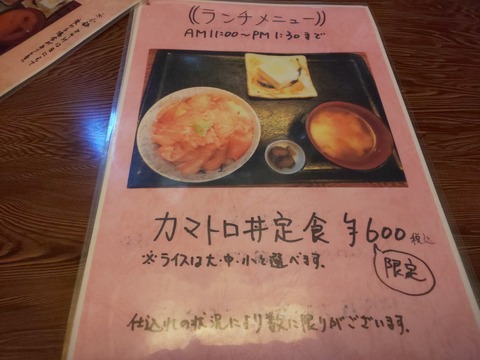 ((ランチメニュー))
AM11:00~PM1:30まで
カマトロ丼定食 ¥600 税込
限定
※ライスは大・中・小を選べます。
仕込れの状況により数に限りがございます。